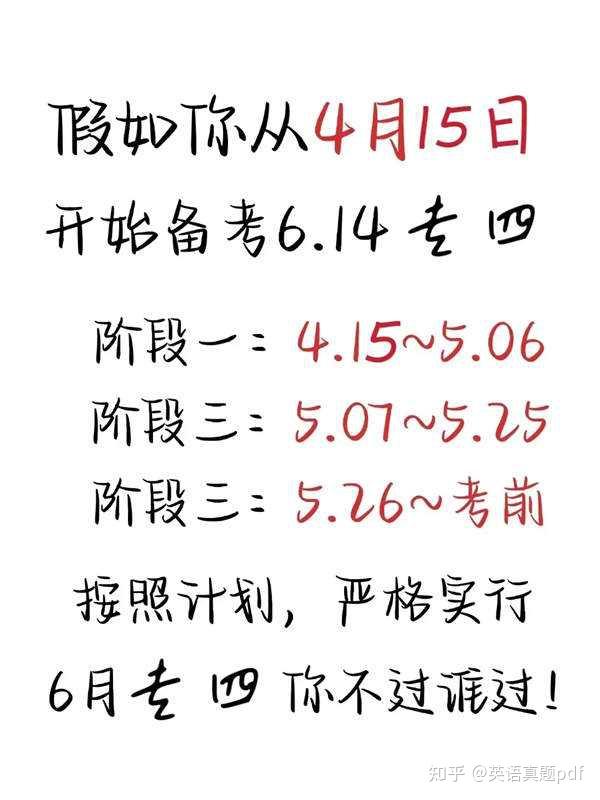 假如你从4月15日
开始备考6.14专四
阶段一：4.15~5.06
阶段三：5.07~5.25
阶段三：5.26~考前
按照计划，严格实行
6月专四你不过谁过！
知乎 @英语真题pdf